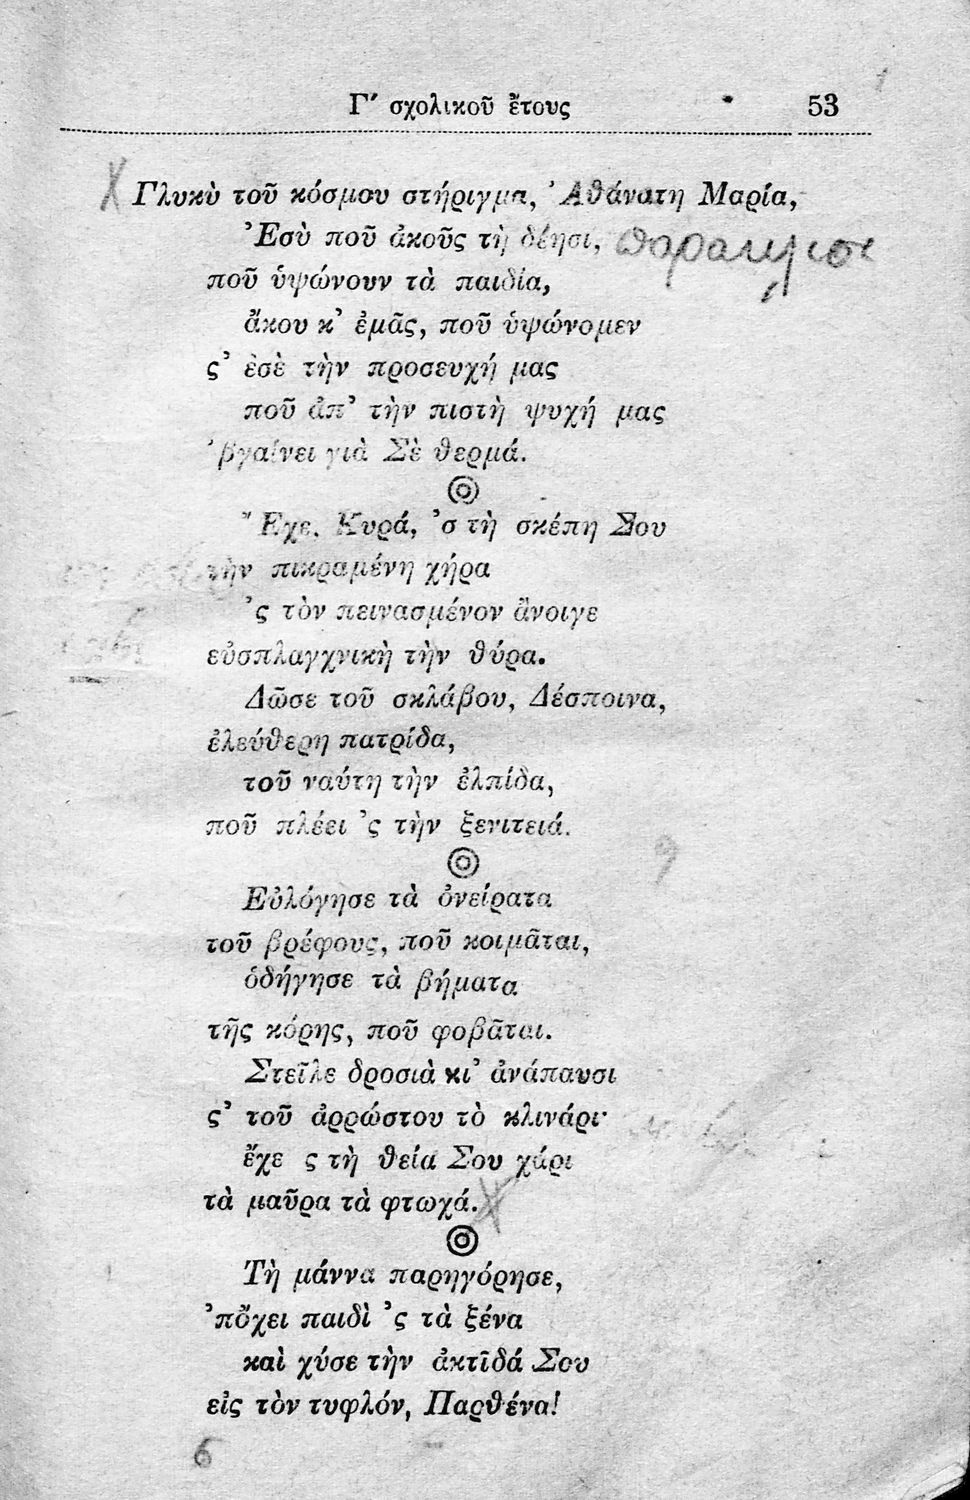 Γ′ σχολικοῦ ἔτους 53
Γλυκὺ τοῦ κόσμου στήριγμα, Ἀθάνατη Μαρία,
Ἐσὺ ποῦ ἀκοῦς τὴ δέησι,
ποῦ ὑψώνουν τὰ παιδία,
ἄκου κ’ ἐμᾶς, ποῦ ὑψώνομεν
ς’ ἐσὲ τὴν προσευχή μας
ποῦ ἀπ’ τὴν πιστὴ ψυχή μας
’βγαίνει γιὰ Σὲ θερμά.
Ἔχε, Κυρά, ’σ τὴ σκέπη Σου
τὴν πικραμένη χήρα
’ς τὸν πεινασμένον ἄνοιγε
εὐσπλαγχνικὴ τὴν θύρα.
Δῶσε τοῦ σκλάβου, Δέσποινα,
ἐλεύθερη πατρίδα,
τοῦ ναύτη τὴν ἐλπίδα,
ποῦ πλέει ’ς τὴν ξενιτειά.
9
Εὐλόγησε τὰ ὀνείρατα
τοῦ βρέφους, ποῦ κοιμᾶται,
ὁδήγησε τὰ βήματα
τῆς κόρης, ποῦ φοβᾶται.
Στεῖλε δροσιὰ κι’ ἀνάπαυσι
ς’ τοῦ ἀρρώστου τὸ κλινάρι·
ἔχε ς τὴ θεία Σου χάρι
τὰ μαῦρα τὰ φτωχά.
Τὴ μάννα παρηγόρησε,
’πὤχει παιδὶ ’ς τὰ ξένα
καὶ χύσε τὴν ἀκτῖδά Σου
εἰς τὸν τυφλόν, Παρθένα!
6